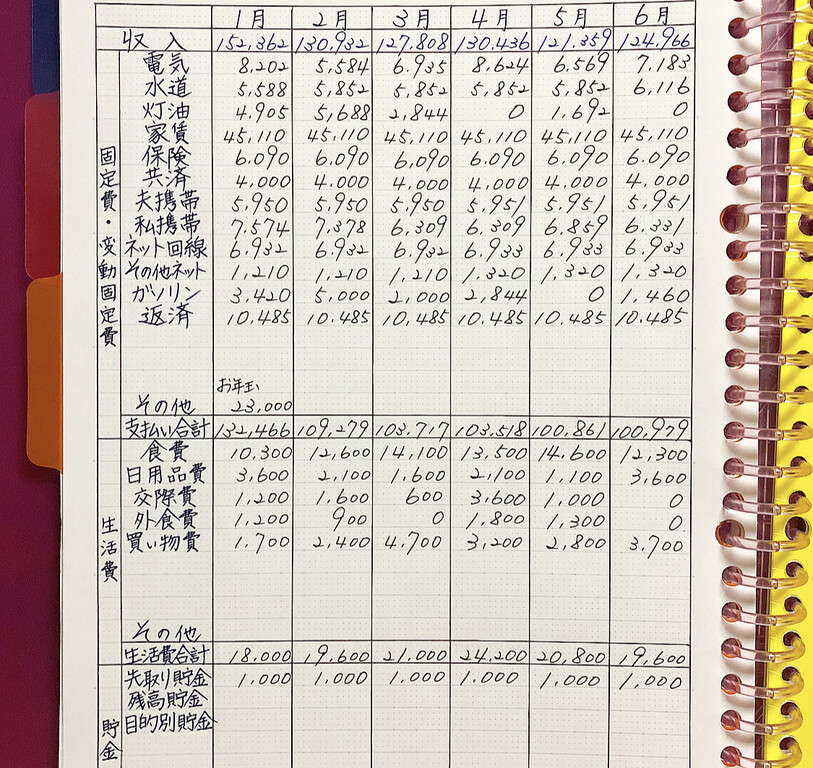 1月 2月 3月 4月 5月 6月
収入 152,362 130,932 127,808 130,436 121,359 124,966
固定費・変動固定費
電気 8,202 5,584 6,935 8,624 6,569 7,183
水道 5,588 5,852 5,852 5,852 5,852 6,116
灯油 4,905 5,688 2,844 0 1,692 0
家賃 45,110 45,110 45,110 45,110 45,110 45,110
保険 6,090 6,090 6,090 6,090 6,090 6,090
共済 4,000 4,000 4,000 4,000 4,000 4,000
夫携帯 5,950 5,950 5,950 5,951 5,951 5,951
私携帯 7,574 7,378 6,309 6,309 6,859 6,331
ネット回線 6,932 6,932 6,932 6,933 6,933 6,933
その他ネット 1,210 1,210 1,210 1,320 1,320 1,320
ガソリン 3,420 5,000 2,000 2,844 0 1,460
返済 10,485 10,485 10,485 10,485 10,485 10,485
お年玉
その他 23,000
支払い合計 132,466 109,279 103,717 103,518 100,861 100,979
生活費
食費 10,300 12,600 14,100 13,500 14,600 12,300
日用品費 3,600 2,100 1,600 2,100 1,100 3,600
交際費 1,200 1,600 600 3,600 1,000 0
外食費 1,200 900 0 1,800 1,300 0
買い物費 1,700 2,400 4,700 3,200 2,800 3,700
その他
生活費合計 18,000 19,600 21,000 24,200 20,800 19,600
貯金
先取り貯金 1,000 1,000 1,000 1,000 1,000 1,000
残高貯金
目的別貯金